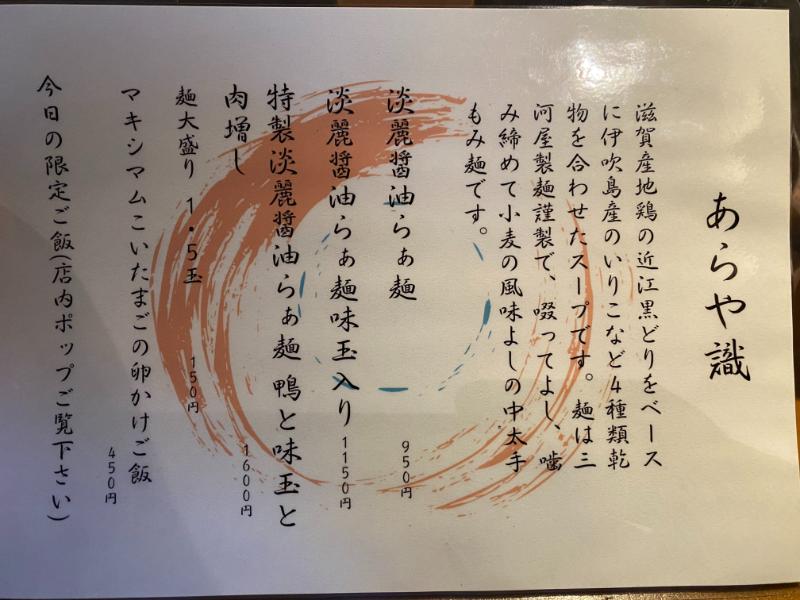 あらや識
滋賀産地鶏の近江黒どりをベース
に伊吹島産のいりこなど4種類乾
物を合わせたスープです。麺は三
河屋製麺謹製で、啜ってよし、噛
み締めて小麦の風味よしの中太手
もみ麺です。
淡麗醤油らぁ麺
950円
淡麗醤油らぁ麺味玉入り
1150円
特製淡麗醤油らぁ麺 鴨と味玉と
肉増し
1600円
麺大盛り 1・5玉
150円
マキシマムこいたまごの卵かけご飯
450円
今日の限定ご飯(店内ポップご覧下さい)